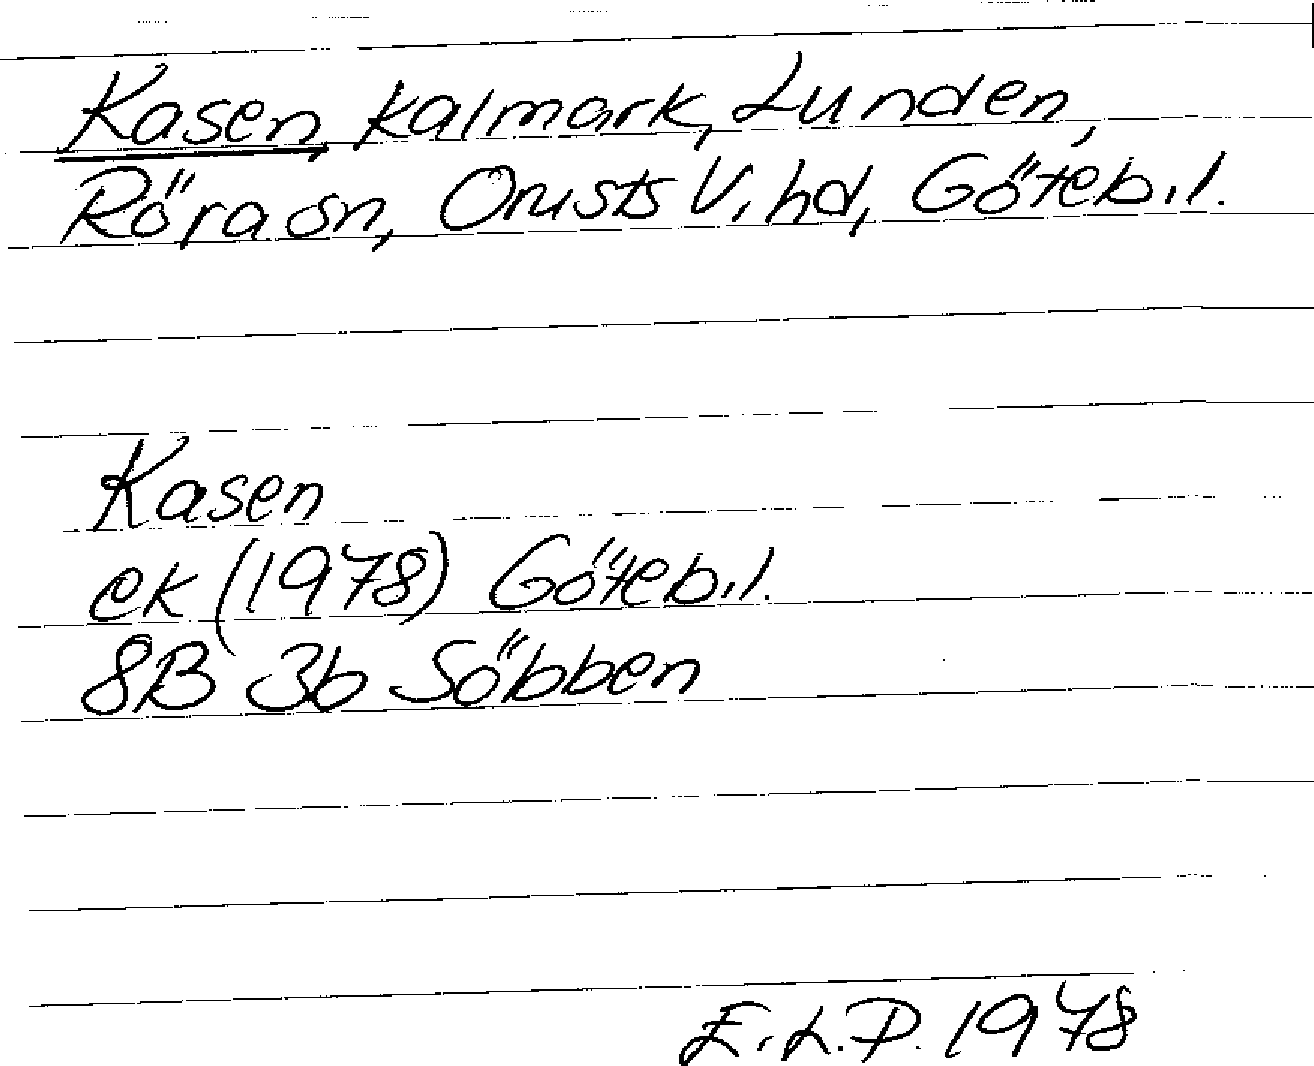 Kasen, kalmark, Lunden,
Röra sn, Orusts V. hd, Göteb. l.
Kasen
ek (1978) Göteb. l.
8B 3b Söbben
E. L. P. 1978